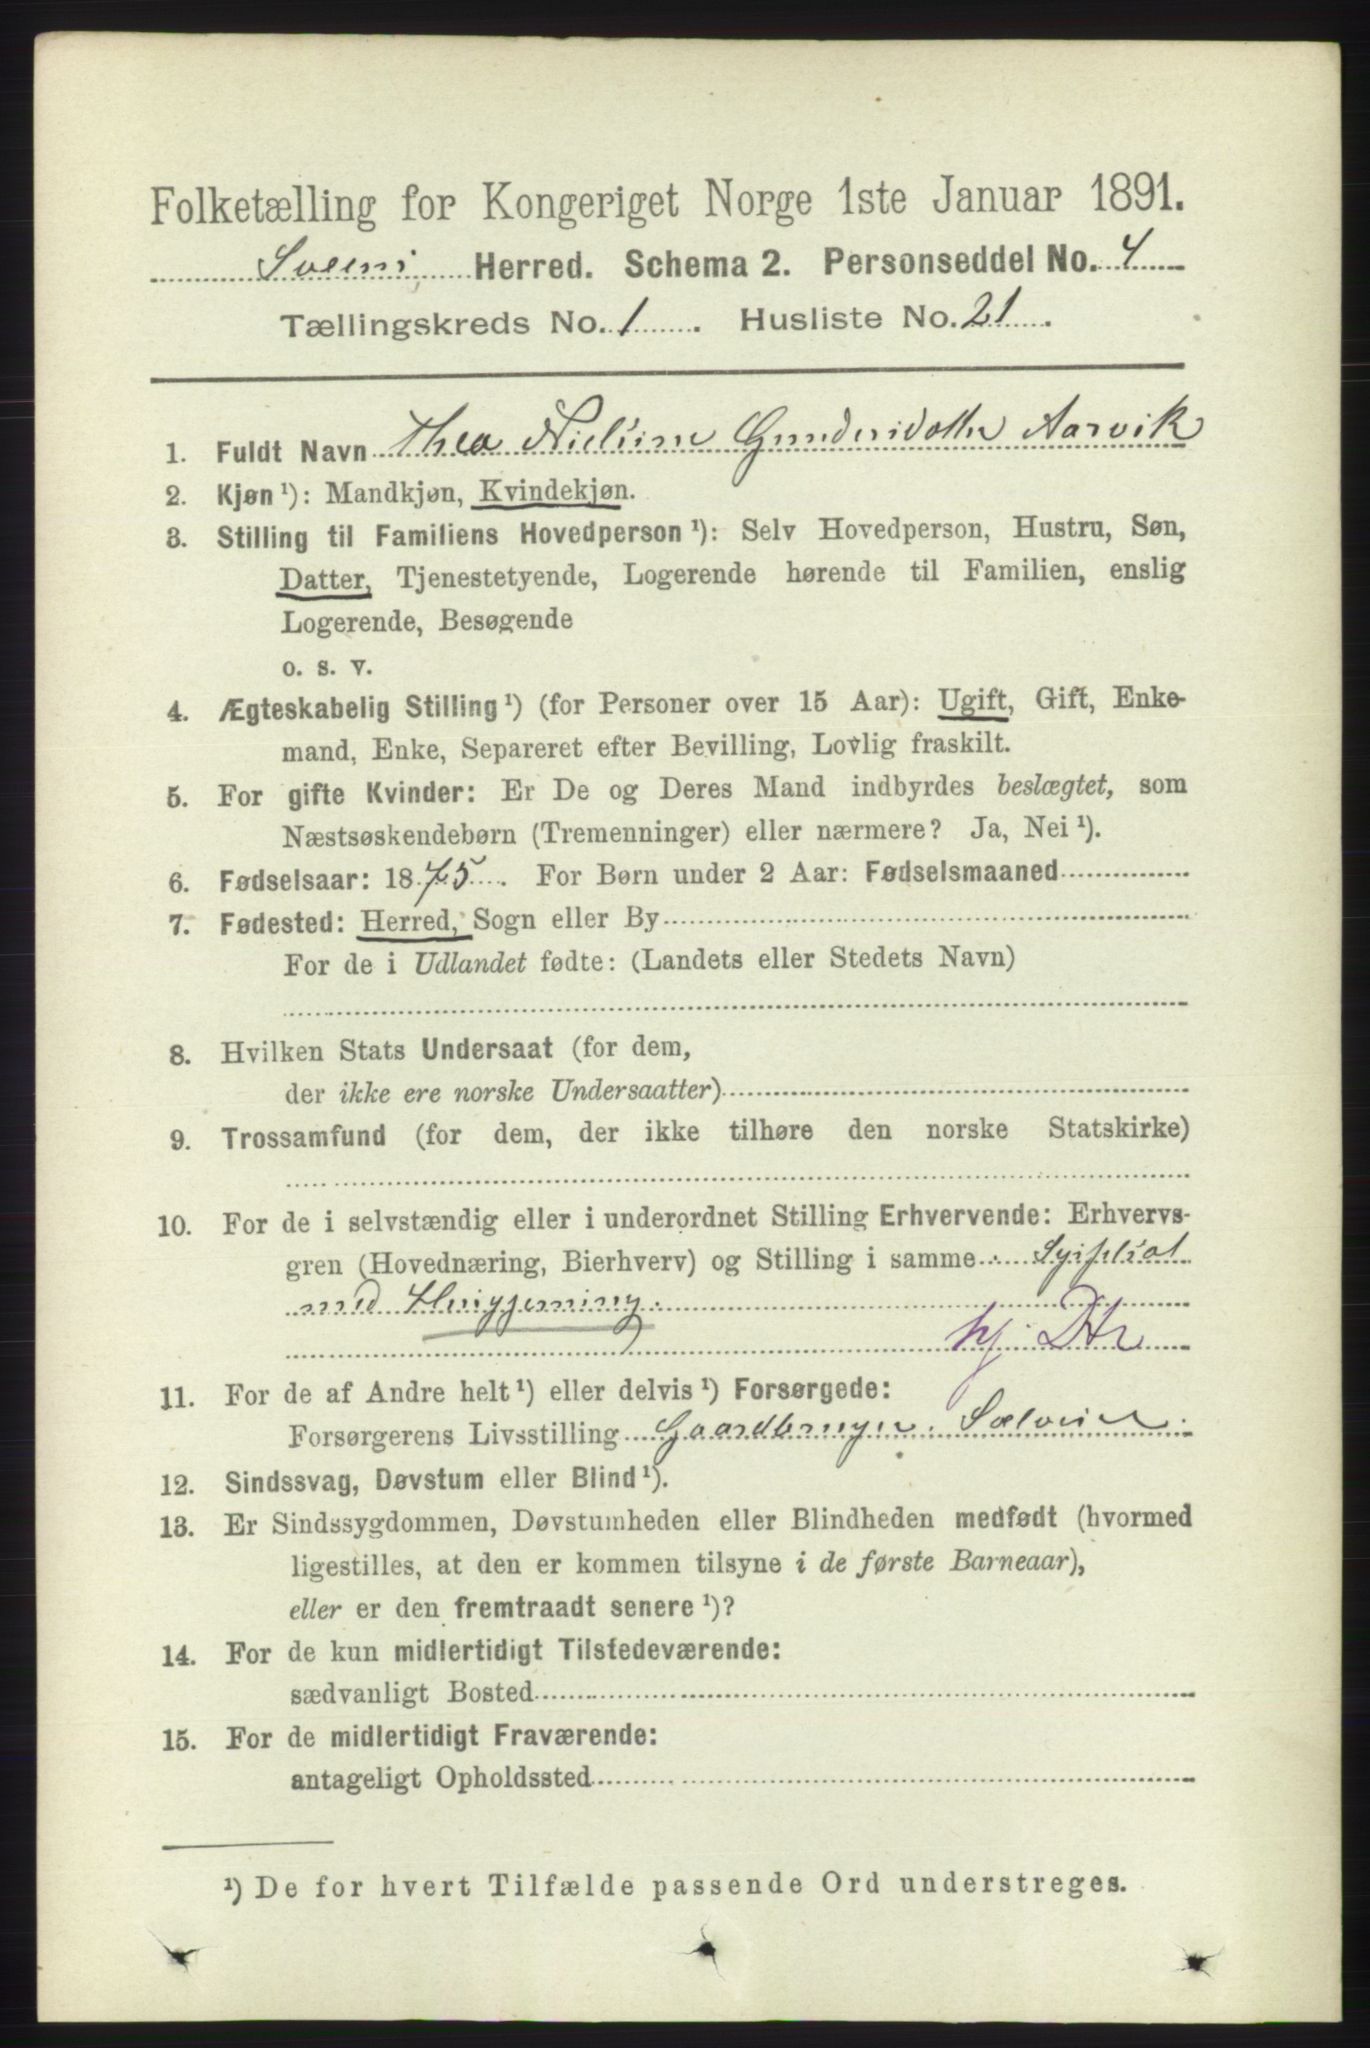 Folketælling for Kongeriget Norge 1ste Januar 1891.
Sveen Herred. Schema 2. Personseddel No. 4
Tællingskreds No. 1. Husliste No. 21.
1. Fuldt Navn Thea Nicoline Gundersdotter Aarvik
2. Kjøn ¹): Mandkjøn, Kvindekjøn.
3. Stilling til Familiens Hovedperson ¹): Selv Hovedperson, Hustru, Søn,
Datter, Tjenestetyende, Logerende hørende til Familien, enslig
Logerende, Besøgende
o. s. v.
4. Ægteskabelig Stilling ¹) (for Personer over 15 Aar): Ugift, Gift, Enke-
mand, Enke, Separeret efter Bevilling, Lovlig fraskilt.
5. For gifte Kvinder: Er De og Deres Mand indbyrdes beslægtet, som
Næstsøskendebørn (Tremenninger) eller nærmere? Ja, Nei ¹).
6. Fødselsaar: 1875. For Børn under 2 Aar: Fødselsmaaned
7. Fødested: Herred, Sogn eller By
For de i Udlandet fødte: (Landets eller Stedets Navn)
8. Hvilken Stats Undersaat (for dem,
der ikke ere norske Undersaatter)
9. Trossamfund (for dem, der ikke tilhøre den norske Statskirke)
10. For de i selvstændig eller i underordnet Stilling Erhvervende: Erhvervs-
gren (Hovednæring, Bierhverv) og Stilling i samme
med
hj. Dtr
11. For de af Andre helt ¹) eller delvis ¹) Forsørgede:
Forsørgerens Livsstilling Gaardbruger. Selveier.
12. Sindssvag, Døvstum eller Blind ¹).
13. Er Sindssygdommen, Døvstumheden eller Blindheden medfødt (hvormed
ligestilles, at den er kommen tilsyne i de første Barneaar),
eller er den fremtraadt senere ¹)?
14. For de kun midlertidigt Tilstedeværende:
sædvanligt Bosted
15. For de midlertidigt Fraværende:
antageligt Opholdssted
¹) De for hvert Tilfælde passende Ord understreges.